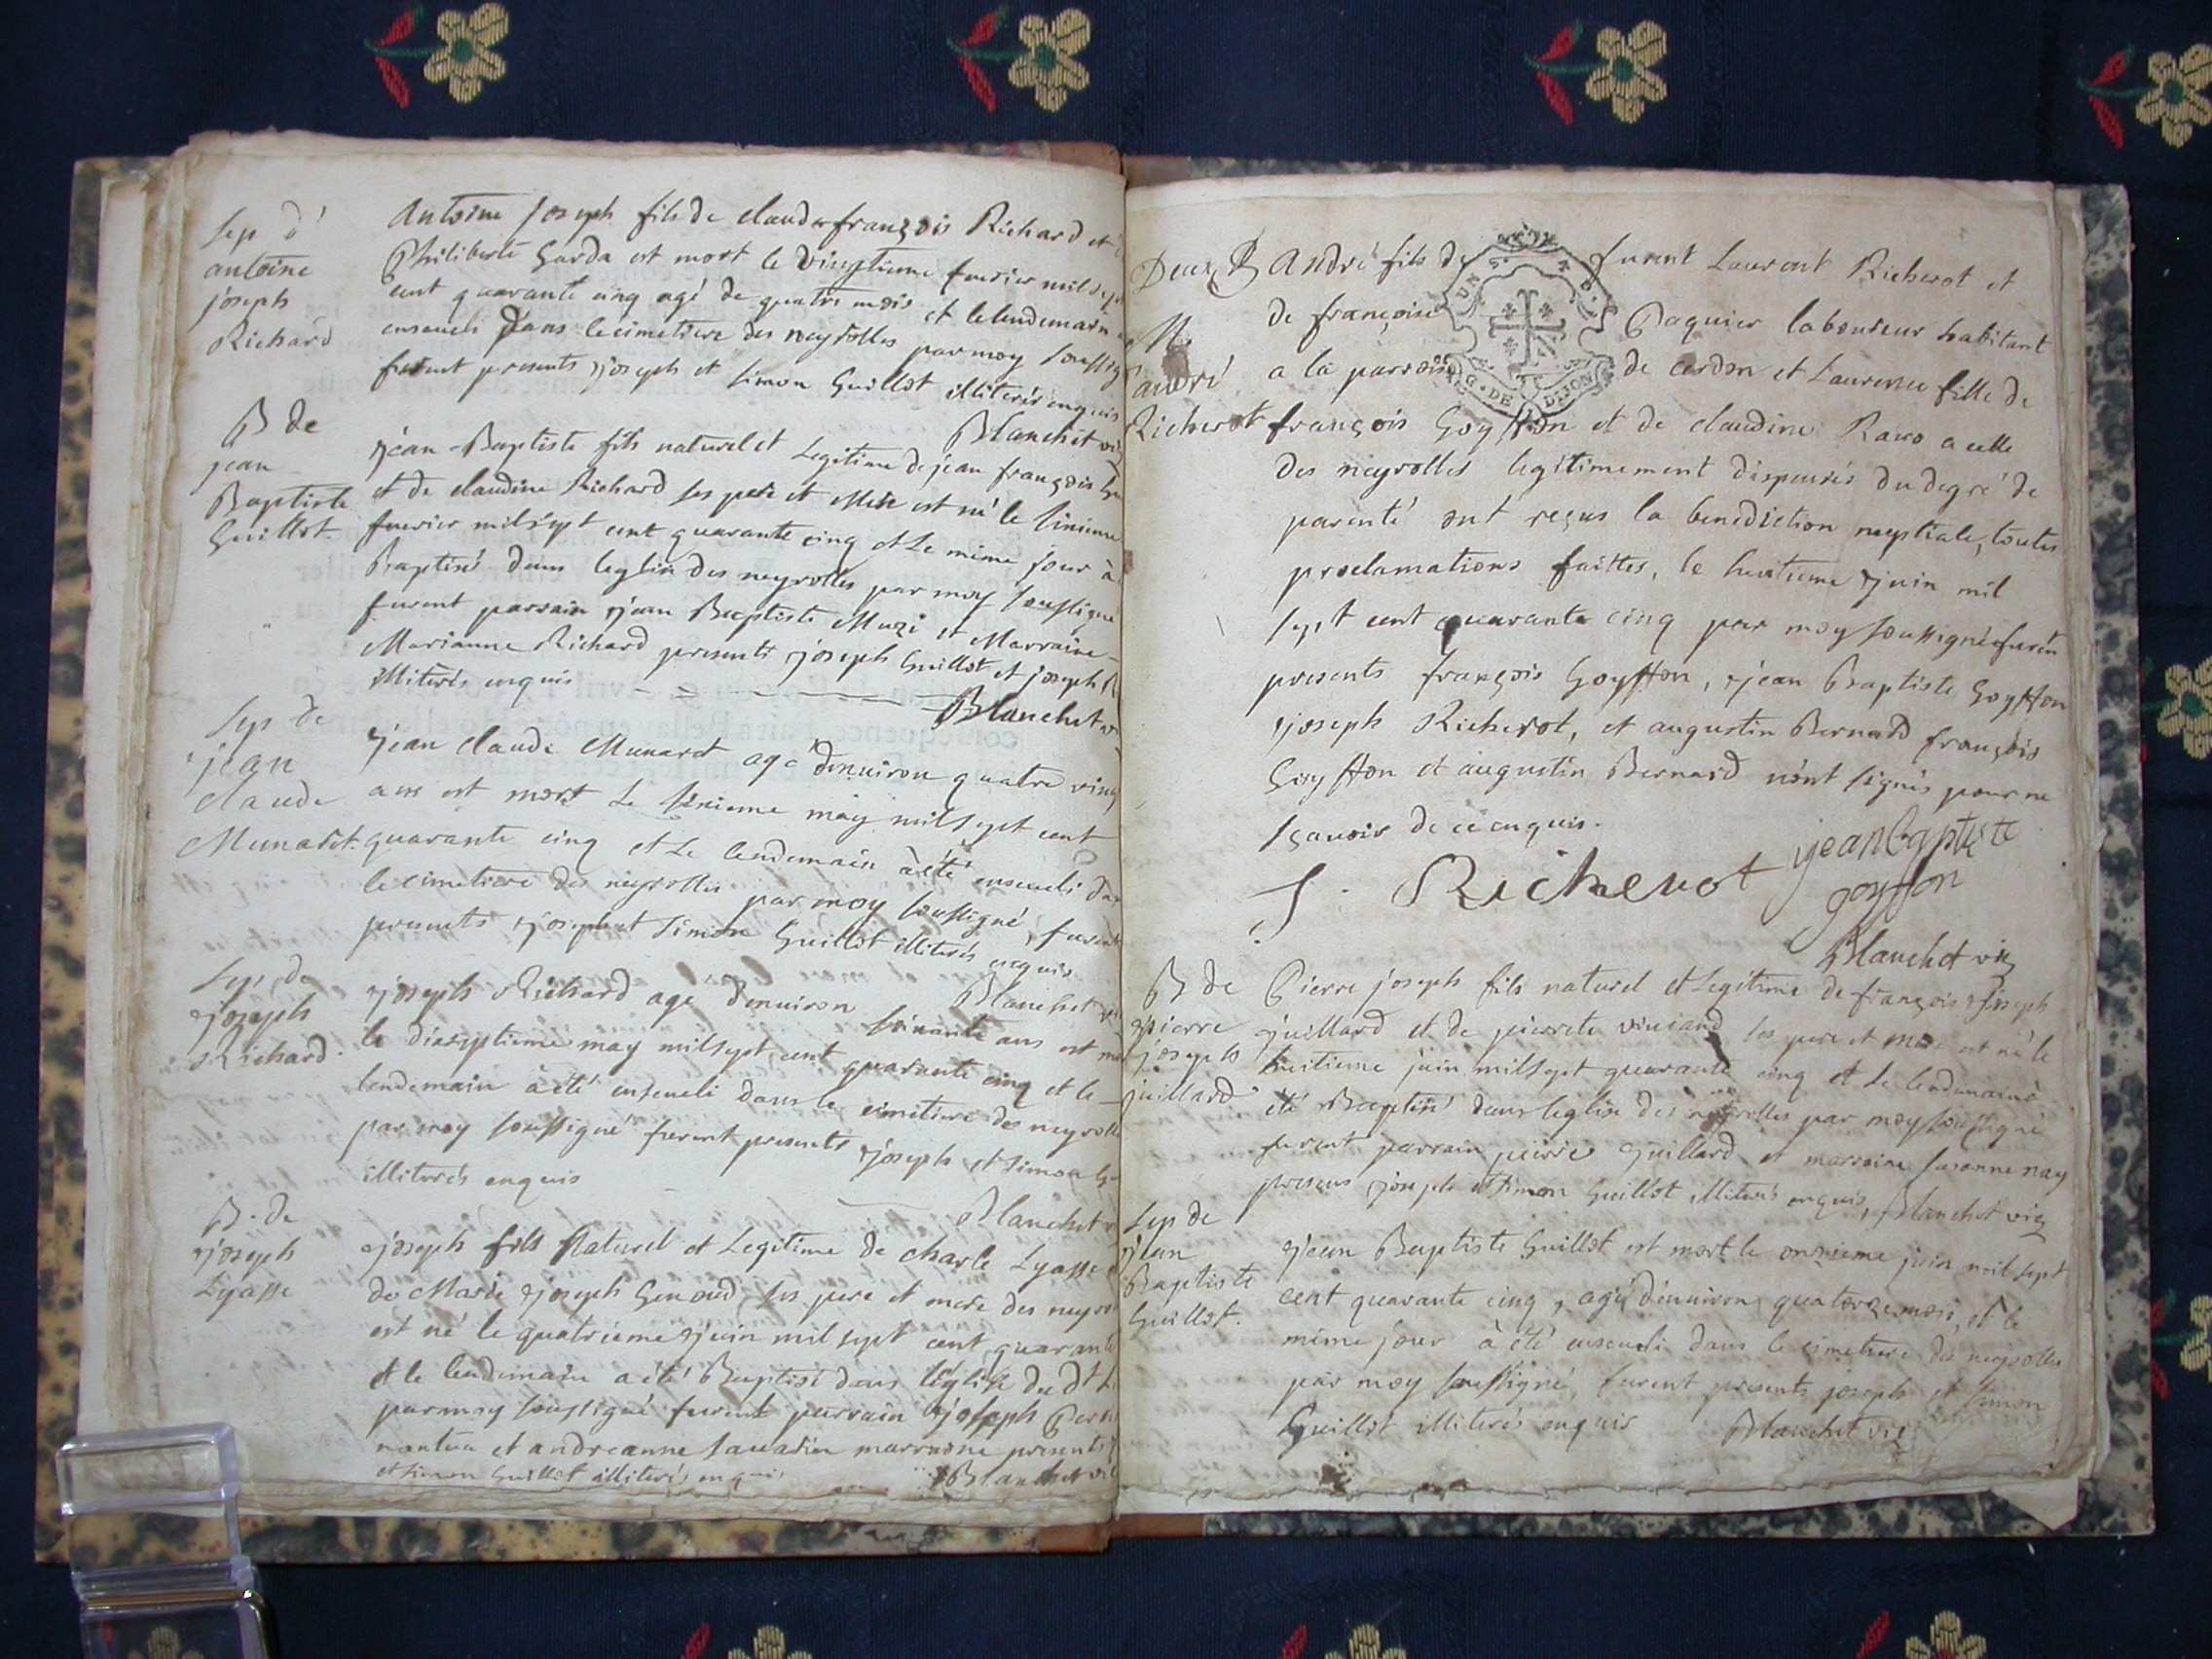 Sep d'
antoine
joseph
Richard
Antoine Joseph fils de claude françois Richard et
Philiberte Garda est mort le vingtieme feurier mil sept
cent quarante cinq agé de quatre mois et le lendemain
enseueli dans le cimetiere des neyrolles par moy soussig
furent presents joseph et simon Guillot illiterés enquis
Blanchet vic
B de
jean
Baptiste
Guillot.
jean-Baptiste fils naturel et Legitime de jean françois
et de claudine Richard ses pere et Mere est né le
feurier mil sept cent quarante cinq et le même jour à
Baptisé dans leglise des neyrolles par moy soussigné
furent parrain jean Baptiste Muzi et Marraine
Marianne Richard presents joseph Guillot et joseph
illiterés enquis
Blanchet vic
Sep de
jean
claude
Munaret.
jean claude Munaret agé d'enuiron quatre ving
ans est mort le sixieme may mil sept cent
quarante cinq et le lendemain à été enseueli da
le cimetiere des neyrolles par moy soussigné, furent
presents joseph et simon Guillot illiterés enquis
Blanchet vic
Sep de
joseph
Richard.
joseph Richard age d'enuiron soixante ans est mo
le dixseptieme may mil sept cent quarante cinq et le
lendemain à été enseueli dans le cimetiere des neyrolle
par moy soussigné furent presents joseph et simon Gu
illiterés enquis
Blanchet v
B. de
joseph
Lyasse
joseph fils naturel et Legitime de charle Lyasse
de Marie joseph Genoud ses pere et mere des neyro
est né le quatrieme juin mil sept cent quarante
et le lendemain a été Baptisé dans léglise du dt
par moy soussigné furent parrain joseph
nantua et andreanne sauarin marraine presents
et simon Guillot illiterés enquis
Blanchet vic
Deux B
M.
d'andré
Richerot
andré fils de furent Laurent Richerot et
UN S.
G. DE DIJON
de françoise Paquier laboureur habitant
a la parroisse de cerdon et Laurence fille de
françois Goyffon et de claudine Rauo a celle
des neyrolles legitimement dispensés du degré de
parenté ont reçus la benediction nuptiale, toutes
proclamations faittes, le huitieme juin mil
sept cent quarante cinq par moy soussigné furent
presents françois Goyffon, jean Baptiste Goyffon
joseph Richerot, et augustin Bernard françois
Goyffon et augustin Bernard n'ont signés pour ne
sçauoir de ce enquis.
J. Richerot jean Baptiste
goyffon
Blanchet vic
B de
pierre
joseph
juillard
Pierre joseph fils naturel et Legitime de françois joseph
juillard et de pierrete viuiand ses pere et mere est né le
huitieme juin mil sept quarante cinq et le lendemain à
été Baptisé dans leglise des neyrolles par moy soussigné
furent parrain pierre Guillard et marraine susanne nay
presens joseph et simon Guillot illiterés enquis, Blanchet vic
Sep de
jean
Baptiste
Guillot.
jean Baptiste Guillot est mort le onzieme juin mil sept
cent quarante cinq, agé d'enuiron quatorze mois, et le
même jour à été enseueli dans le cimetiere des neyrolles
par moy soussigné, furent presents joseph et simon
Guillot illiterés enquis Blanchet vic